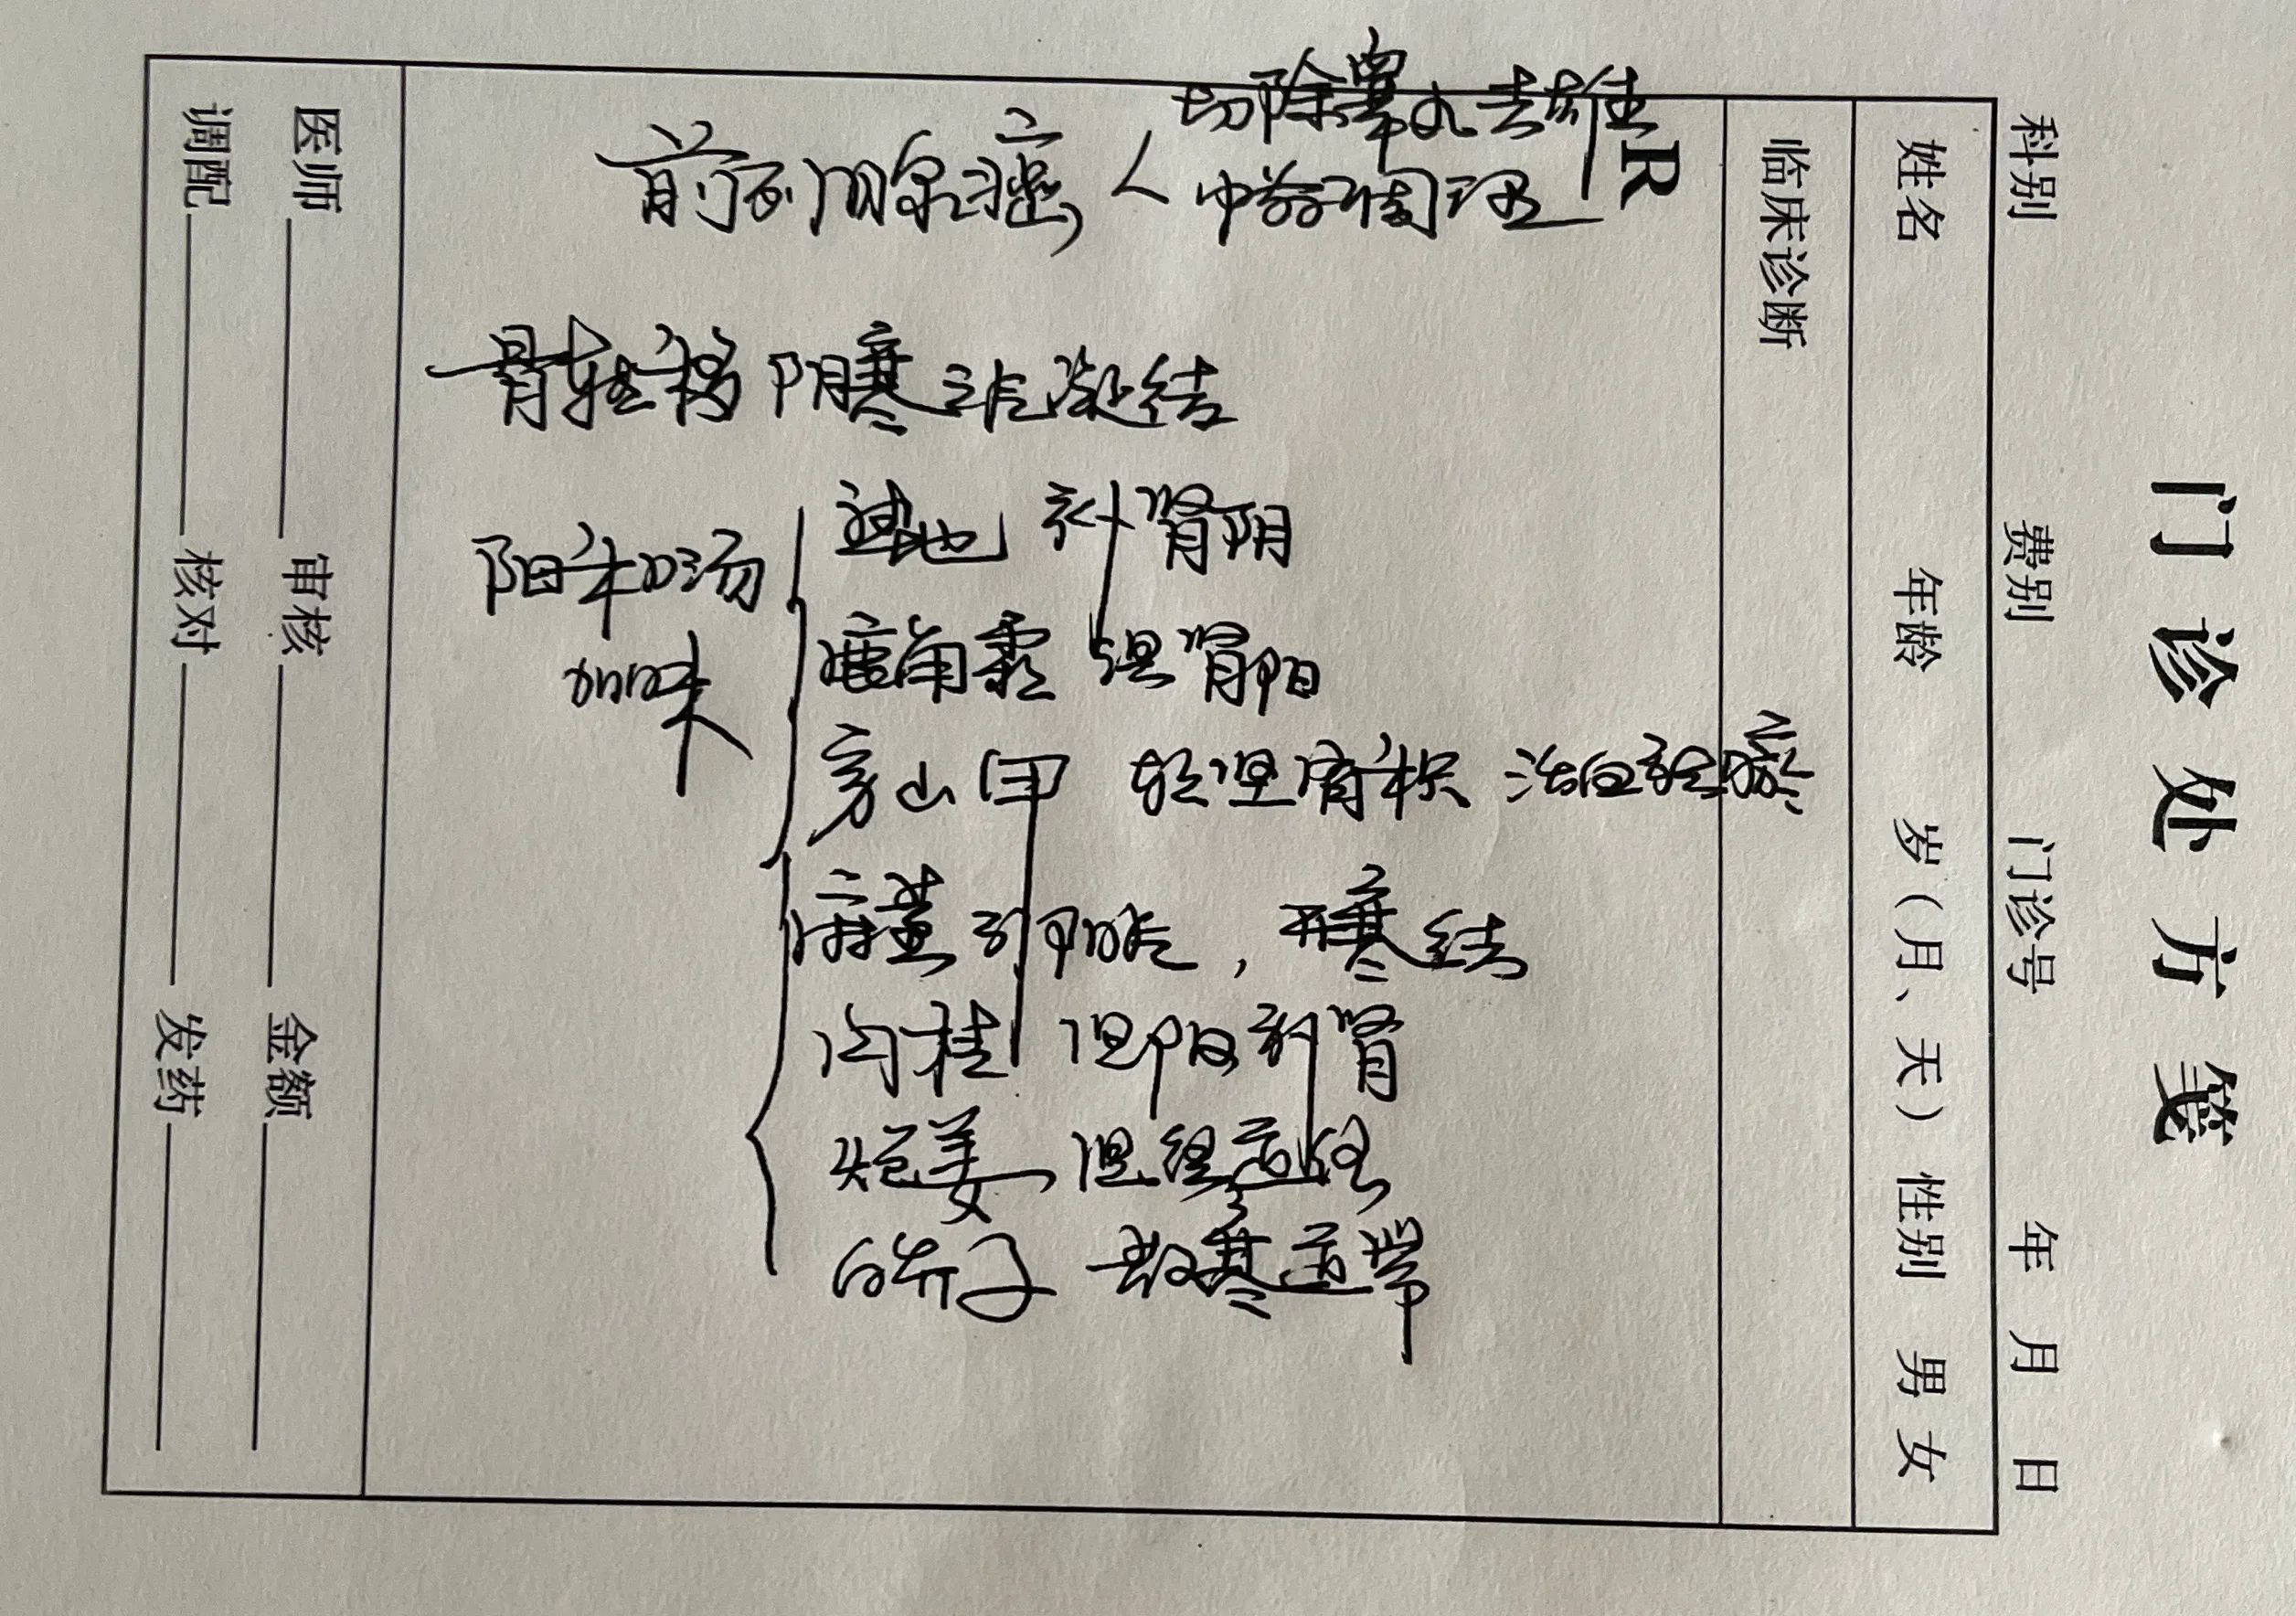 门诊处方笺
科别 费别 门诊号 年 月 日
姓名 年龄 岁（月、天） 性别 男 女
临床诊断
R
切除睾丸去雄
前列腺癌 中药调理
骨转移 阴寒之气凝结
阳和汤加味
熟地 补肾阴
鹿角霜 温肾阳
穿山甲 软坚消积 治
麻黄 引阳气，开寒结
肉桂 温阳补肾
炮姜 温经通络
白芥子 散寒通滞
医师 审核 金额
调配 核对 发药